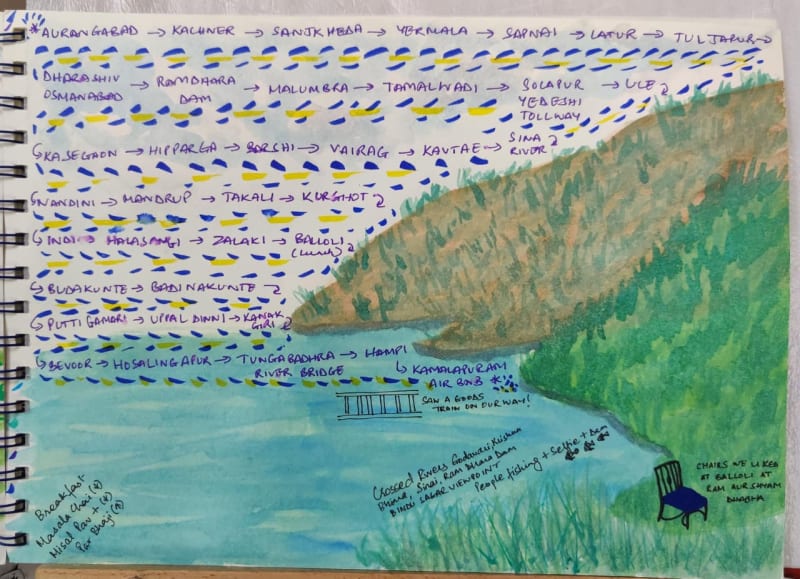 * AURANGABAD → KACHNER → SANJKHEDA → YERMALA → SAPNAI → LATUR → TULJAPUR →
DHARASHIV OSMANABAD → RAMDHARA DAM → MALUMBRA → TAMALWADI → SOLAPUR YEDESHI TOLLWAY → ULE
KASEGAON → HIPPARGA → BARSHI → VAIRAG → KAVTAE → SINA RIVER
NANDINI → MANDRUP → TAKALI → KURGHOT
INDI → HALASANGI → ZALAKI → BALLOLI (lunch)
BUDAKUNTE → BADINAKUNTE
PUTTI GAMARI → UPPALDINNI → KANAK GIRI
BEVOOR → HOSALINGAPUR → TUNGABADHRA RIVER BRIDGE → HAMPI
KAMALAPURAM
AIR BNB *
SAW A GOODS
TRAIN ON OUR WAY!
Crossed Rivers Godavari, Krishna
Bhima, Sina, Ram Dhara Dam
BINDU SAGAR VIEWPOINT
People fishing + Selfie + Dam
Breakfast-
Masala Chai (4)
Misal Pav + (4)
Pav Bhaji (1)
CHAIRS WE LIKED
AT BALLOLI AT
RAM AUR SHYAM
DHABHA